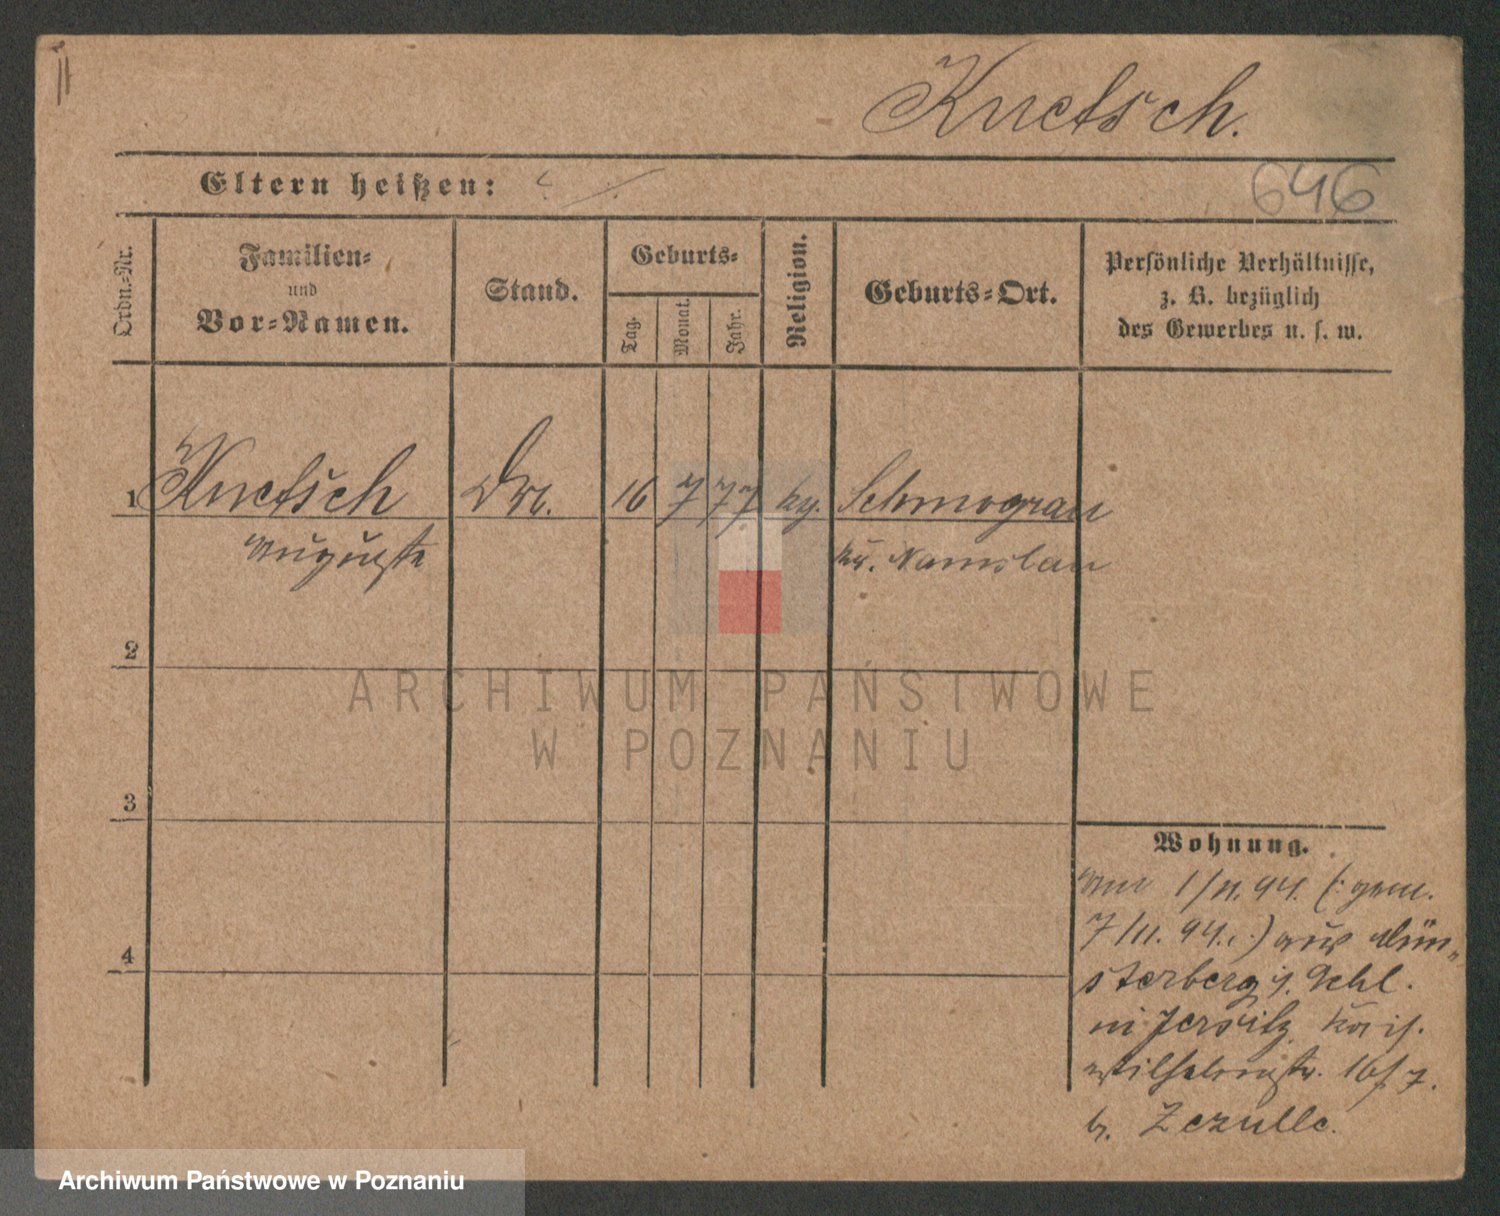 Knetsch.
Eltern heißen:
646
Ordn.-Nr.
Familien-
und
Vor-Namen.
Stand.
Geburts-
Tag.
Monat.
Jahr.
Religion.
Geburts-Ort.
Persönliche Verhältnisse,
z. B. bezüglich
des Gewerbes u. s. w.
1 Knetsch 16 7 77 Schmograu
Auguste Kr. Namslau
2
ARCHIWUM PAŃSTWOWE
W POZNANIU
3
Wohnung.
1/11. 94. (: gem.
7/11. 94. :) aus Mün-
sterberg i. Schl.
in Jersitz Kais.
Wilhelmstr. 16/7.
b. Zezulle.
4
Archiwum Państwowe w Poznaniu